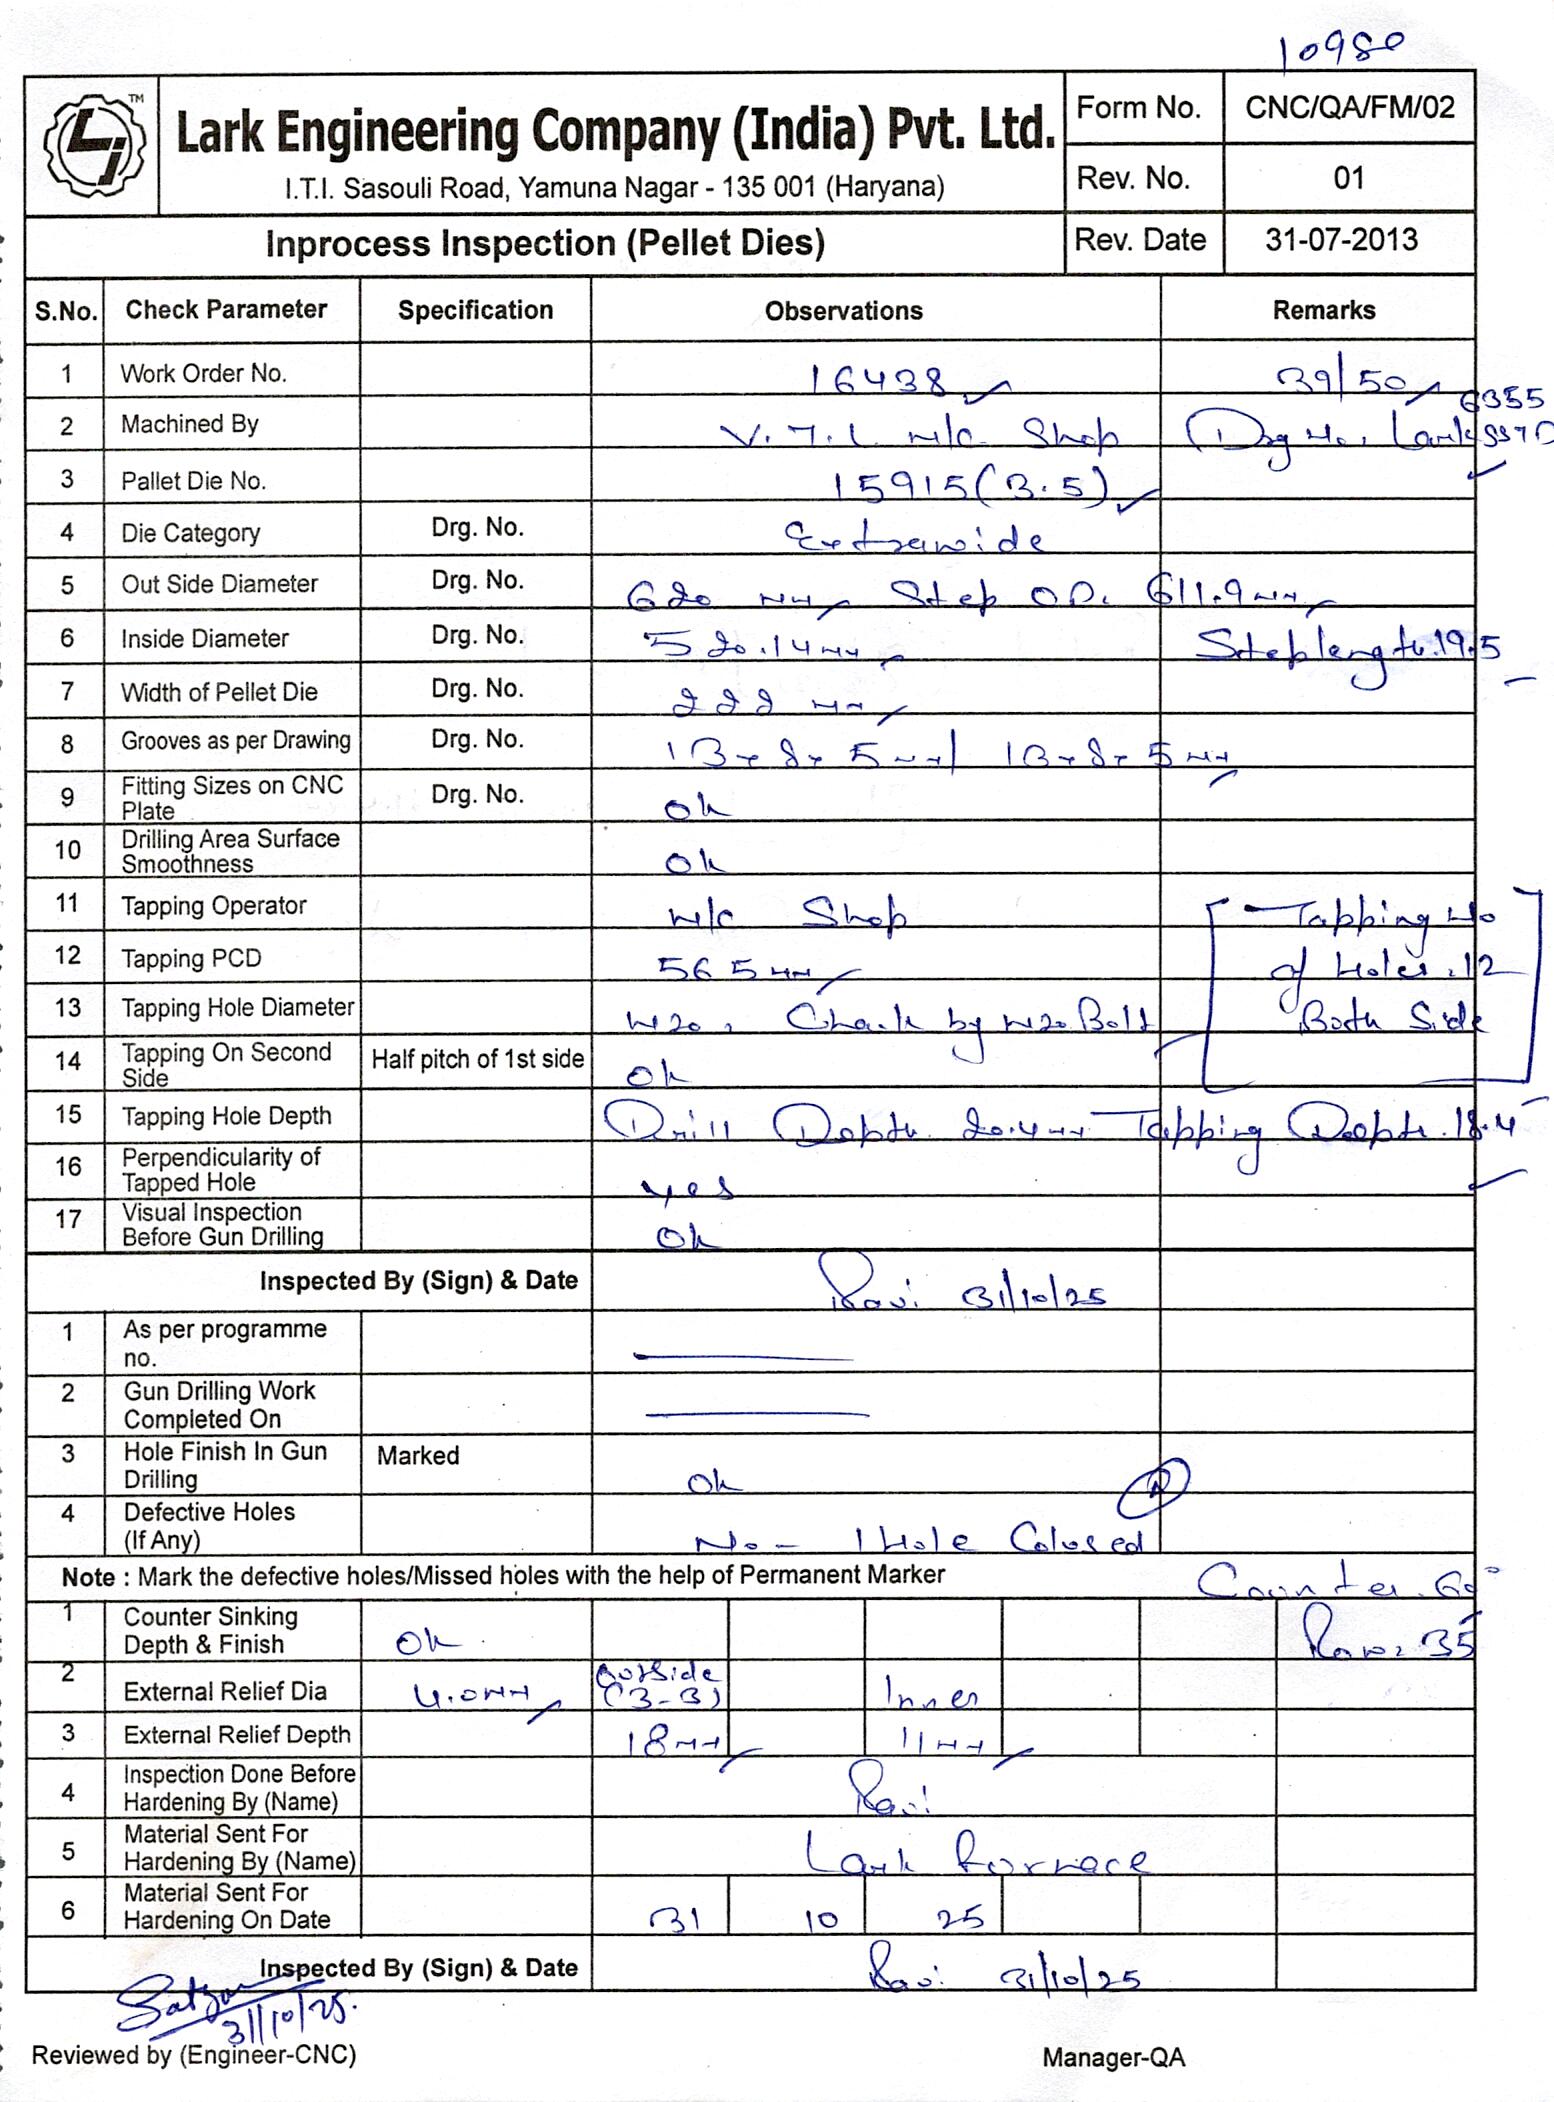 10980
Lark Engineering Company (India) Pvt. Ltd.
I.T.I. Sasouli Road, Yamuna Nagar - 135 001 (Haryana)
Form No. CNC/QA/FM/02
Rev. No. 01
Inprocess Inspection (Pellet Dies) Rev. Date 31-07-2013
S.No. Check Parameter Specification Observations Remarks
1 Work Order No. 16438 39/50
2 Machined By V.T.L M/c Shop Drg No. Lark
6355
3 Pallet Die No. 15915(3.5)
4 Die Category Drg. No. Extrawide
5 Out Side Diameter Drg. No. 620 mm Step OD. 611.9mm
6 Inside Diameter Drg. No. 520.14mm Step length.19.5
7 Width of Pellet Die Drg. No. 222 mm
8 Grooves as per Drawing Drg. No. 13x8x5mm/ 13x8x5mm
9 Fitting Sizes on CNC Plate Drg. No. Ok
10 Drilling Area Surface Smoothness Ok
11 Tapping Operator M/c Shop Tapping No
12 Tapping PCD 565mm of Holes.12
13 Tapping Hole Diameter M20, Check by M20 Bolt Both Side
14 Tapping On Second Side Half pitch of 1st side Ok
15 Tapping Hole Depth Drill Depth 20.4mm Tapping Depth.18.4
16 Perpendicularity of Tapped Hole Yes
17 Visual Inspection Before Gun Drilling Ok
Inspected By (Sign) & Date Ravi 31/10/25
1 As per programme no.
2 Gun Drilling Work Completed On
3 Hole Finish In Gun Drilling Marked Ok
4 Defective Holes (If Any) No - 1 Hole Colosed
Note : Mark the defective holes/Missed holes with the help of Permanent Marker Counter.60°
1 Counter Sinking Depth & Finish Ok 35
2 External Relief Dia 4.0mm Outside (3-3) Inner
3 External Relief Depth 18mm 11mm
4 Inspection Done Before Hardening By (Name) Ravi
5 Material Sent For Hardening By (Name) Lark Furnace
6 Material Sent For Hardening On Date 31 10 25
Inspected By (Sign) & Date Ravi 31/10/25
31/10/25.
Reviewed by (Engineer-CNC) Manager-QA